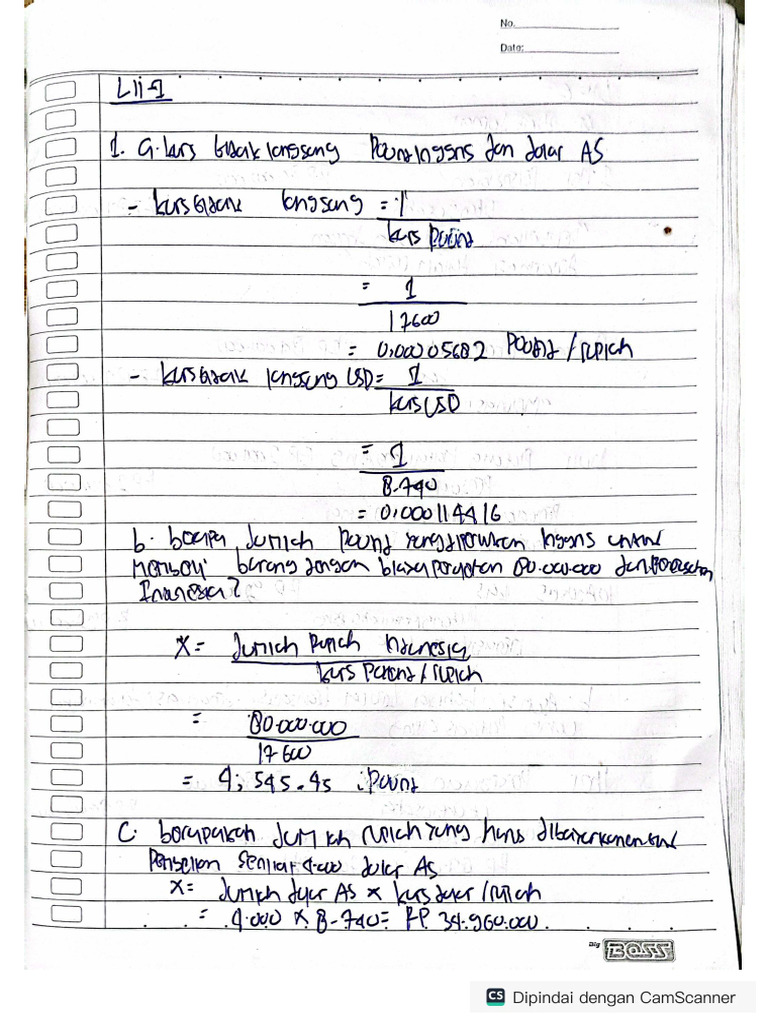 No.
Date:
L11-1
1. a. kurs tidak langsung Pound Inggris dan dolar AS
- kurs tidak langsung = 1
kurs Pound
= 1
17600
= 0,00005682 Pound / rupiah
- kurs tidak langsung USD = 1
kurs USD
= 1
8.740
= 0,000114416
b. berapa Jumlah Pound yang diperlukan Inggris untuk
membeli barang dengan biaya 80.000.000 dari
Indonesia?
X = Jumlah Rupiah Indonesia
kurs Pound / rupiah
= 80.000.000
17600
= 4,545.45 Pound
C. berapakah Jumlah rupiah yang harus dibayarkan untuk
Pembelian senilai 4.000 dolar AS
X = Jumlah dolar AS x kurs dolar / rupiah
= 4.000 x 8.740 = RP. 34.960.000
Big BOSS
CS Dipindai dengan CamScanner